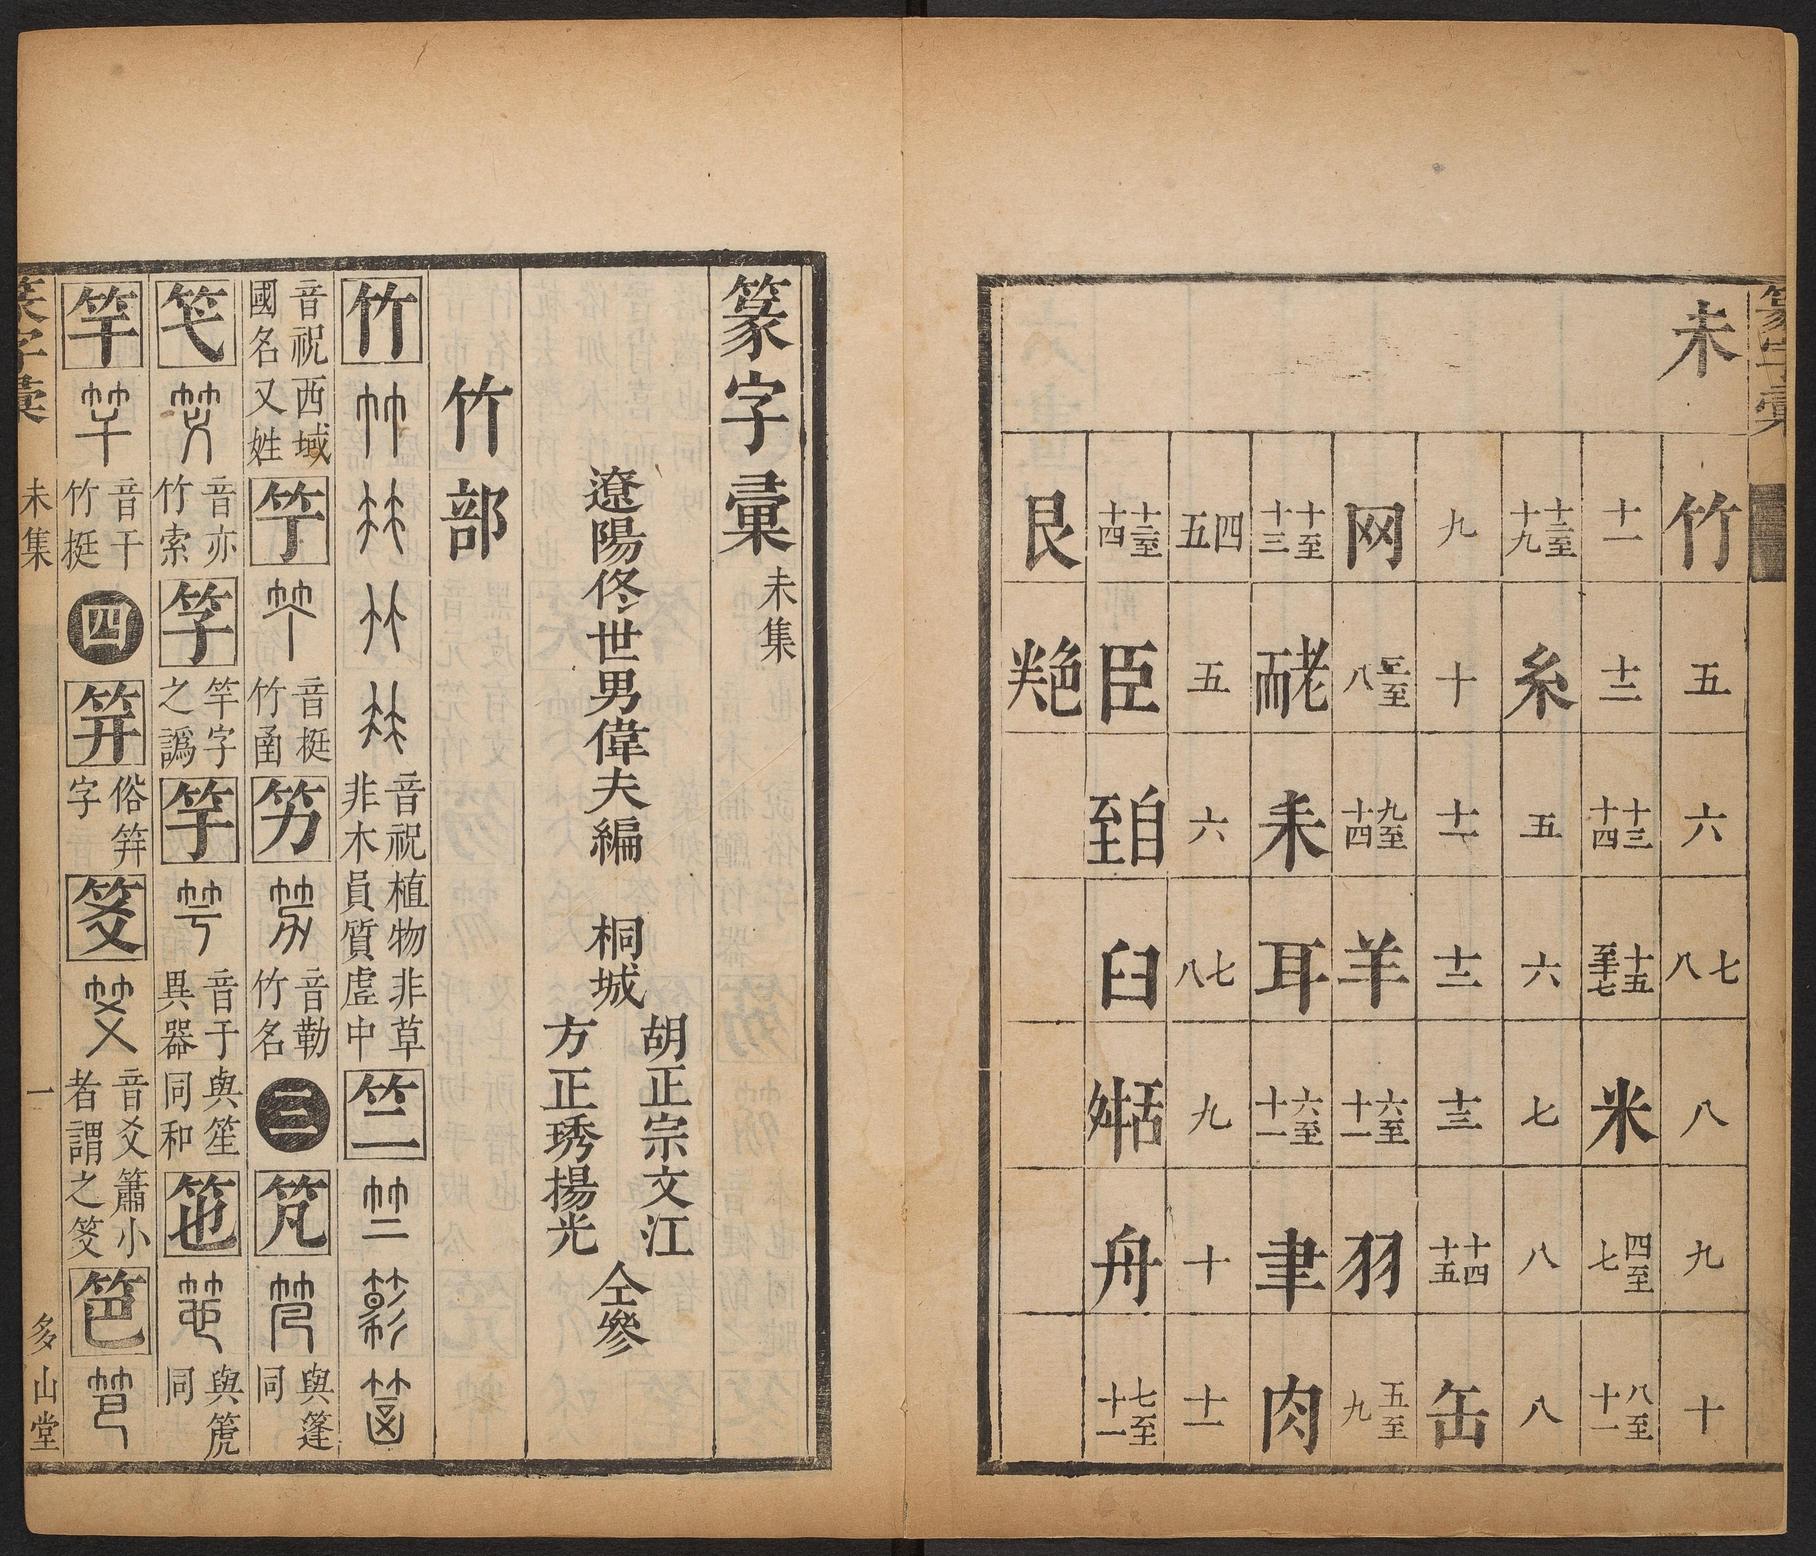 篆字彙
未
竹 五 六 七八 八 九 十
十一 十二 十三十四 十五至十七 米 四至七 八至十一
十二至十九 糸 五 六 七 八 八
九 十 十一 十二 十三 十四十五 缶
网 三至八 九至十四 羊 六至十一 羽 五至九
十至十三 老而 耒 耳 六至十一 聿 肉
四五 五 六 七八 九 十 十一
十二至十四 臣 自至 臼 舌舛 舟 七至十一
艮 色
篆字彙 未集
遼陽佟世男偉夫編 桐城 胡正宗文江 方正琇揚光 仝參
竹部
竹 音祝植物非草非木員質虛中 竺
音祝西域國名又姓 竹 音挺竹 竻 音勒竹名 三 竼 與篷同
笇 音亦竹索 竽字之譌 竽 音于與笙同和異器 竾 與篪同
竿 音干竹挺 四 笄 俗筓字 笅 音爻簫小者謂之笅 笆
篆字彙 未集 一 多山堂